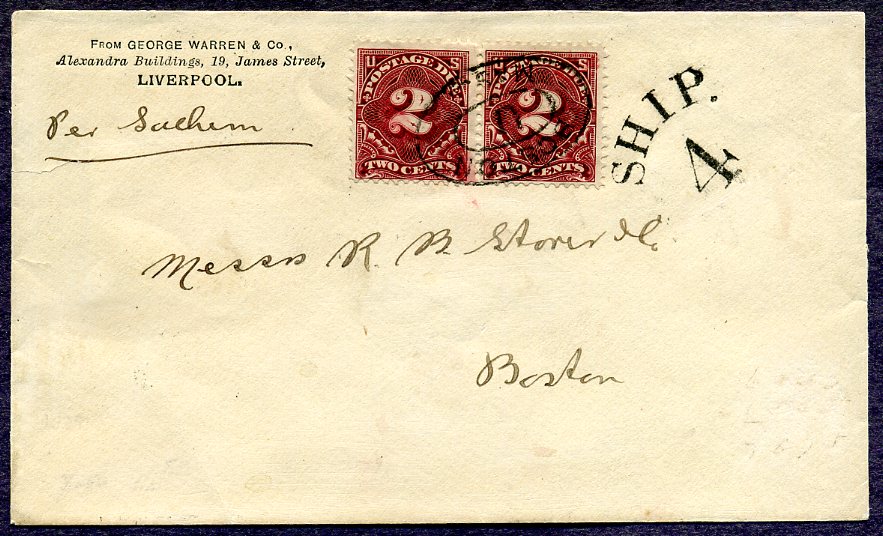 FROM GEORGE WARREN & Co.,
Alexandra Buildings, 19, James Street,
LIVERPOOL.
Per Sachem
U S
POSTAGE DUE
2
TWO CENTS
U S
POSTAGE DUE
2
TWO CENTS
BOSTON
SHIP.
4
Messrs R. B. Storer & Co.
Boston